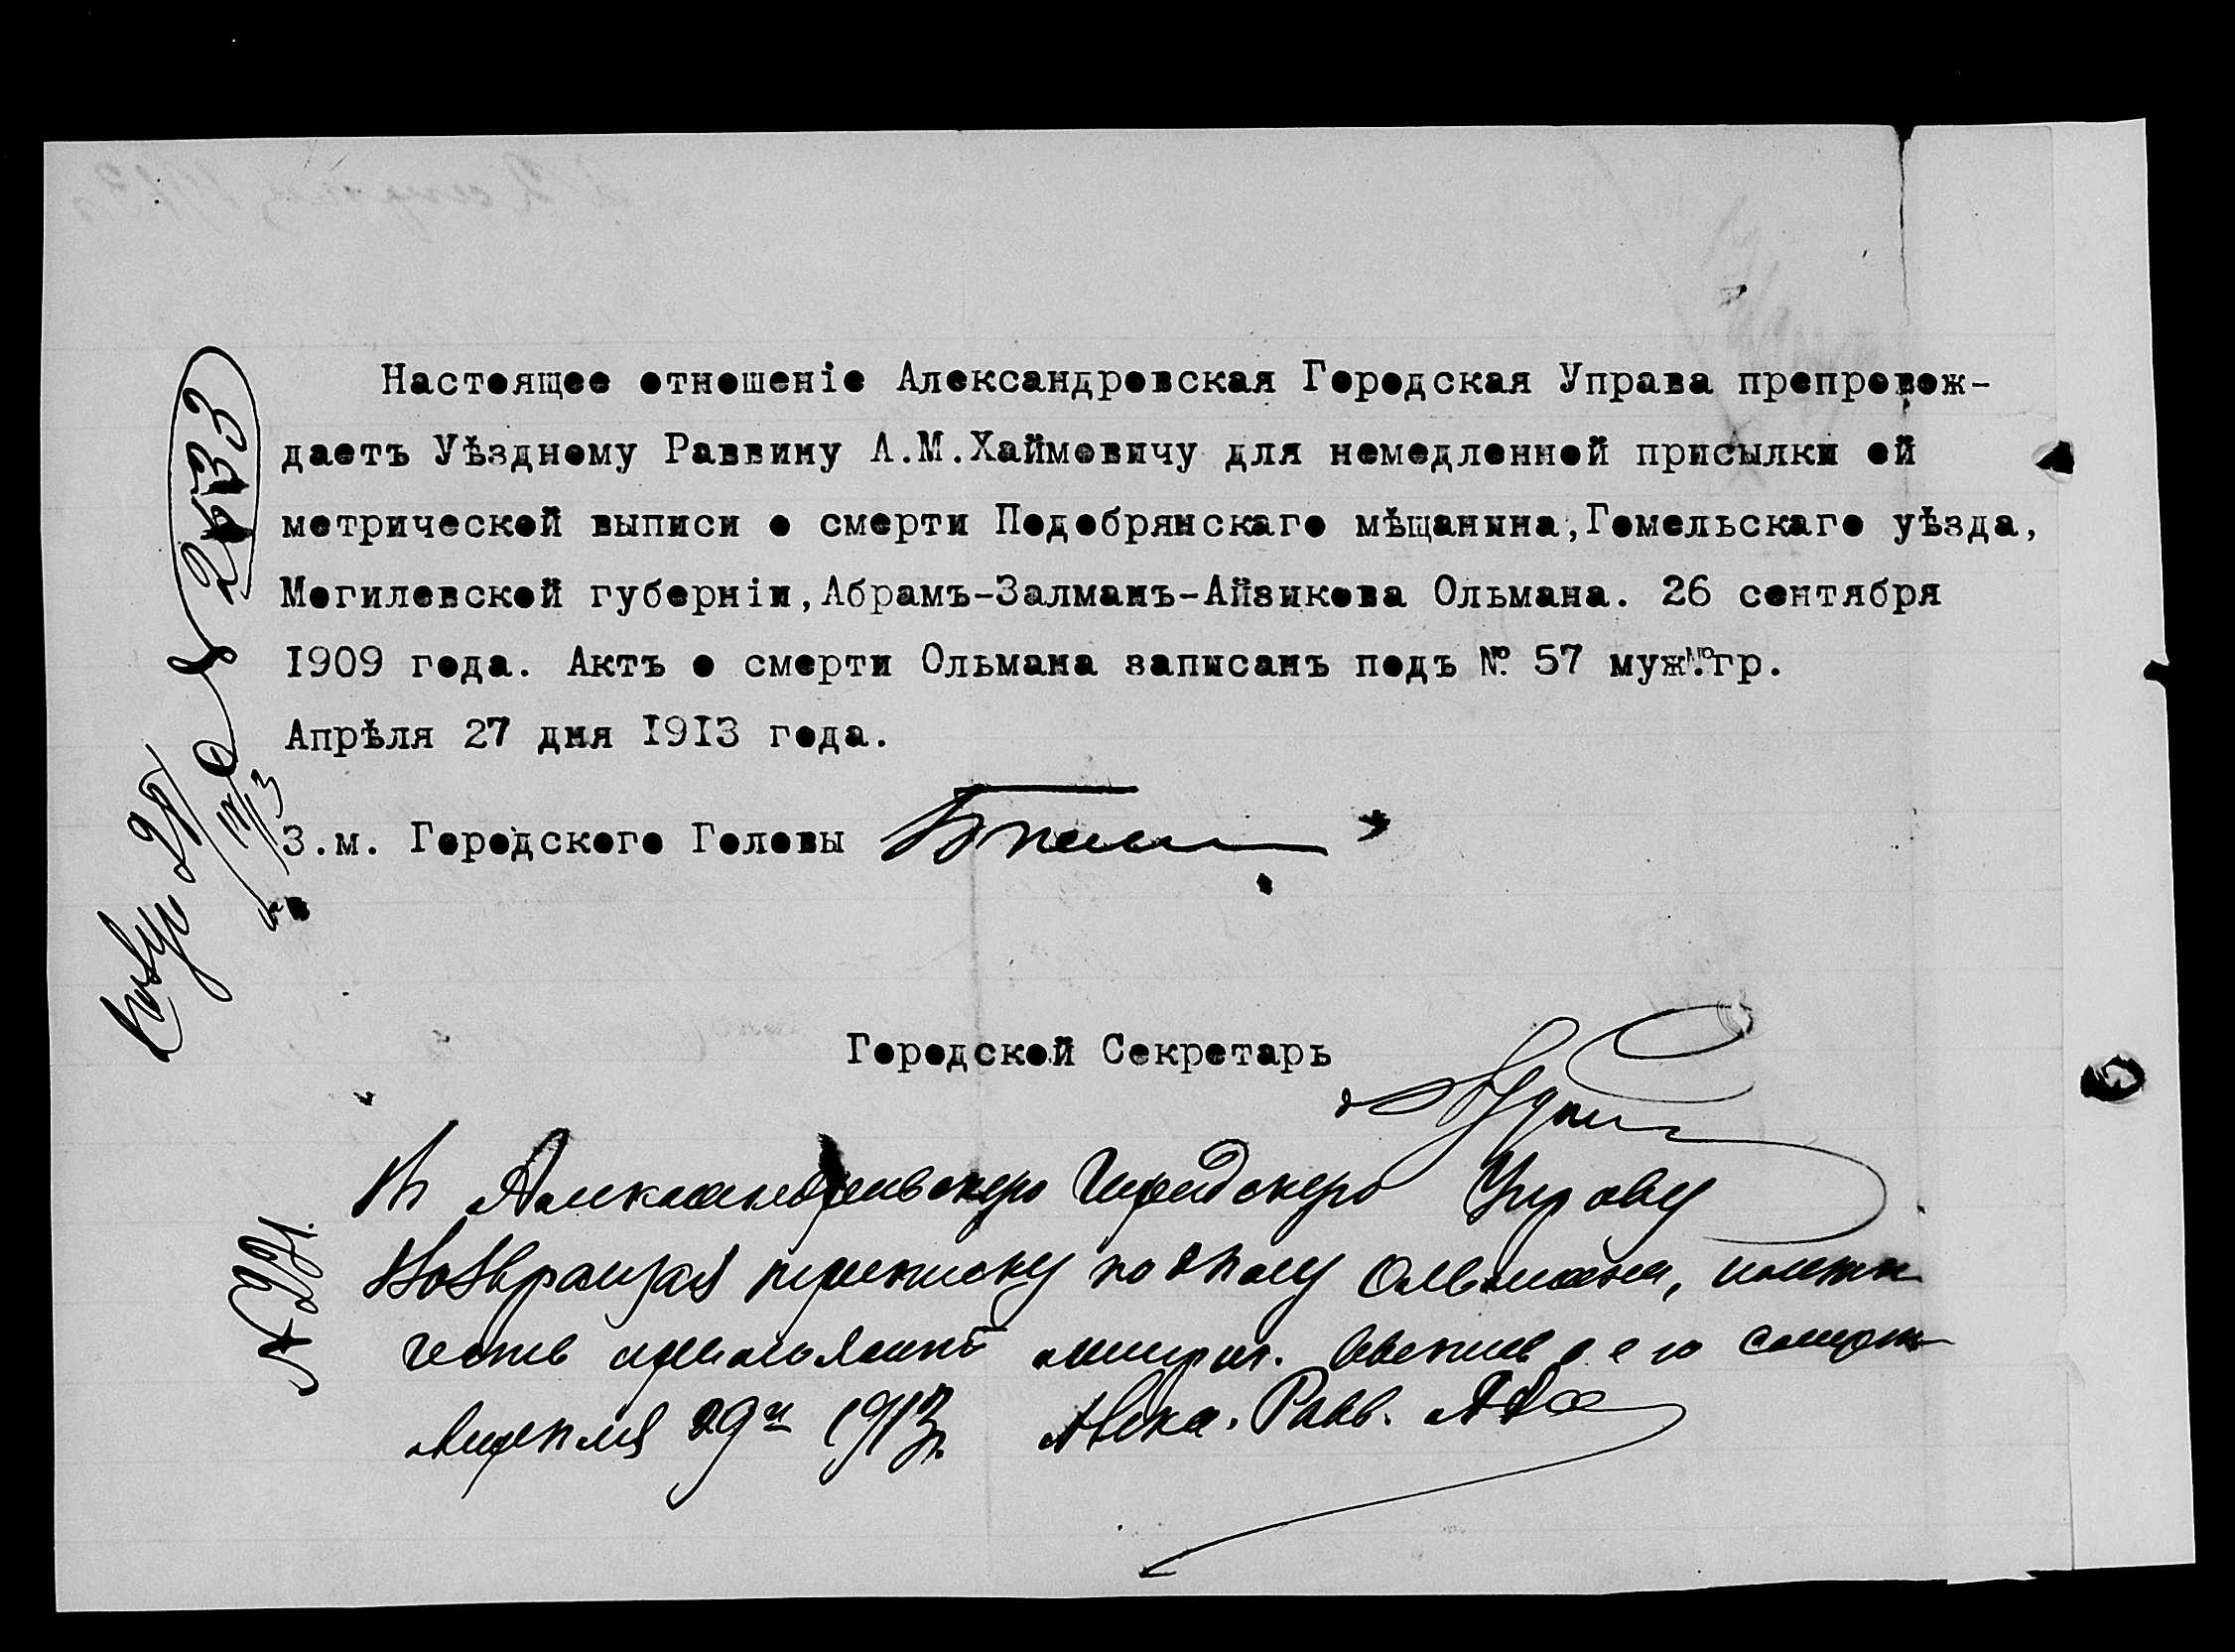 Настоящее отношеніе Александровская Городская Управа препровож-
даетъ Уѣздному Раввину А.М.Хаймовичу для немедленной присылки ей
метрической выписи о смерти Подобрянскаго мѣщанина,Гомельскаго уѣзда,
Могилевской губерніи,Абрамъ-Залманъ-Айзикова Ольмана. 26 сентября
1909 года. Актъ о смерти Ольмана записанъ подъ № 57 муж. гр.
Апрѣля 27 дня 1913 года.
З.м. Городского Головы
Городской Секретарь
Въ Александровскую Городскую Управу
№ 221.
Возвращая переписку по дѣлу Ольмана, имѣю
честь о его смерти
Апрѣля 29 1913 г. Алекс. Равв.